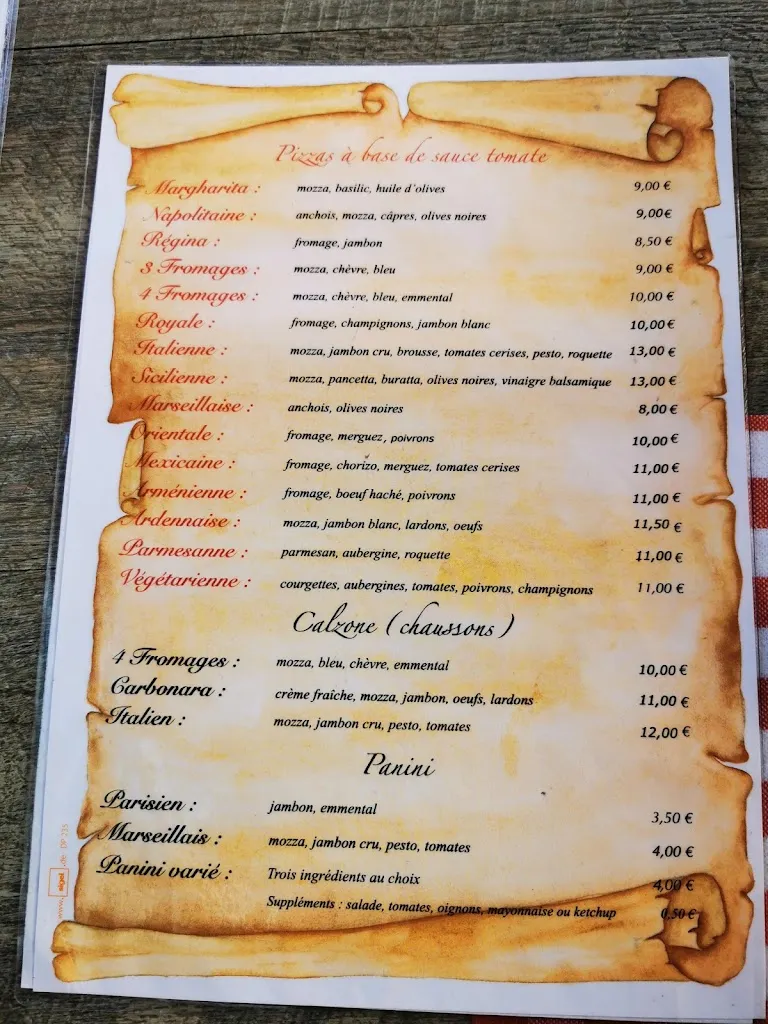 Pizzas à base de sauce tomate
Margharita : mozza, basilic, huile d'olives 9,00 €
Napolitaine : anchois, mozza, câpres, olives noires 9,00€
Régina : fromage, jambon 8,50 €
3 Fromages : mozza, chèvre, bleu 9,00 €
4 Fromages : mozza, chèvre, bleu, emmental 10,00 €
Royale : fromage, champignons, jambon blanc 10,00 €
Italienne : mozza, jambon cru, brousse, tomates cerises, pesto, roquette 13,00 €
Sicilienne : mozza, pancetta, buratta, olives noires, vinaigre balsamique 13,00 €
Marseillaise : anchois, olives noires 8,00 €
Orientale : fromage, merguez, poivrons 10,00 €
Mexicaine : fromage, chorizo, merguez, tomates cerises 11,00 €
Arménienne : fromage, boeuf haché, poivrons 11,00 €
Ardennaise : mozza, jambon blanc, lardons, oeufs 11,50 €
Parmesanne : parmesan, aubergine, roquette 11,00 €
Végétarienne : courgettes, aubergines, tomates, poivrons, champignons 11,00 €
Calzone (chaussons)
4 Fromages : mozza, bleu, chèvre, emmental 10,00 €
Carbonara : crème fraîche, mozza, jambon, oeufs, lardons 11,00 €
Italien : mozza, jambon cru, pesto, tomates 12,00 €
Panini
Parisien : jambon, emmental 3,50 €
Marseillais : mozza, jambon cru, pesto, tomates 4,00 €
Panini varié : Trois ingrédients au choix 4,00 €
Suppléments : salade, tomates, oignons, mayonnaise ou ketchup 0,50 €
www.sigel.de DP 235